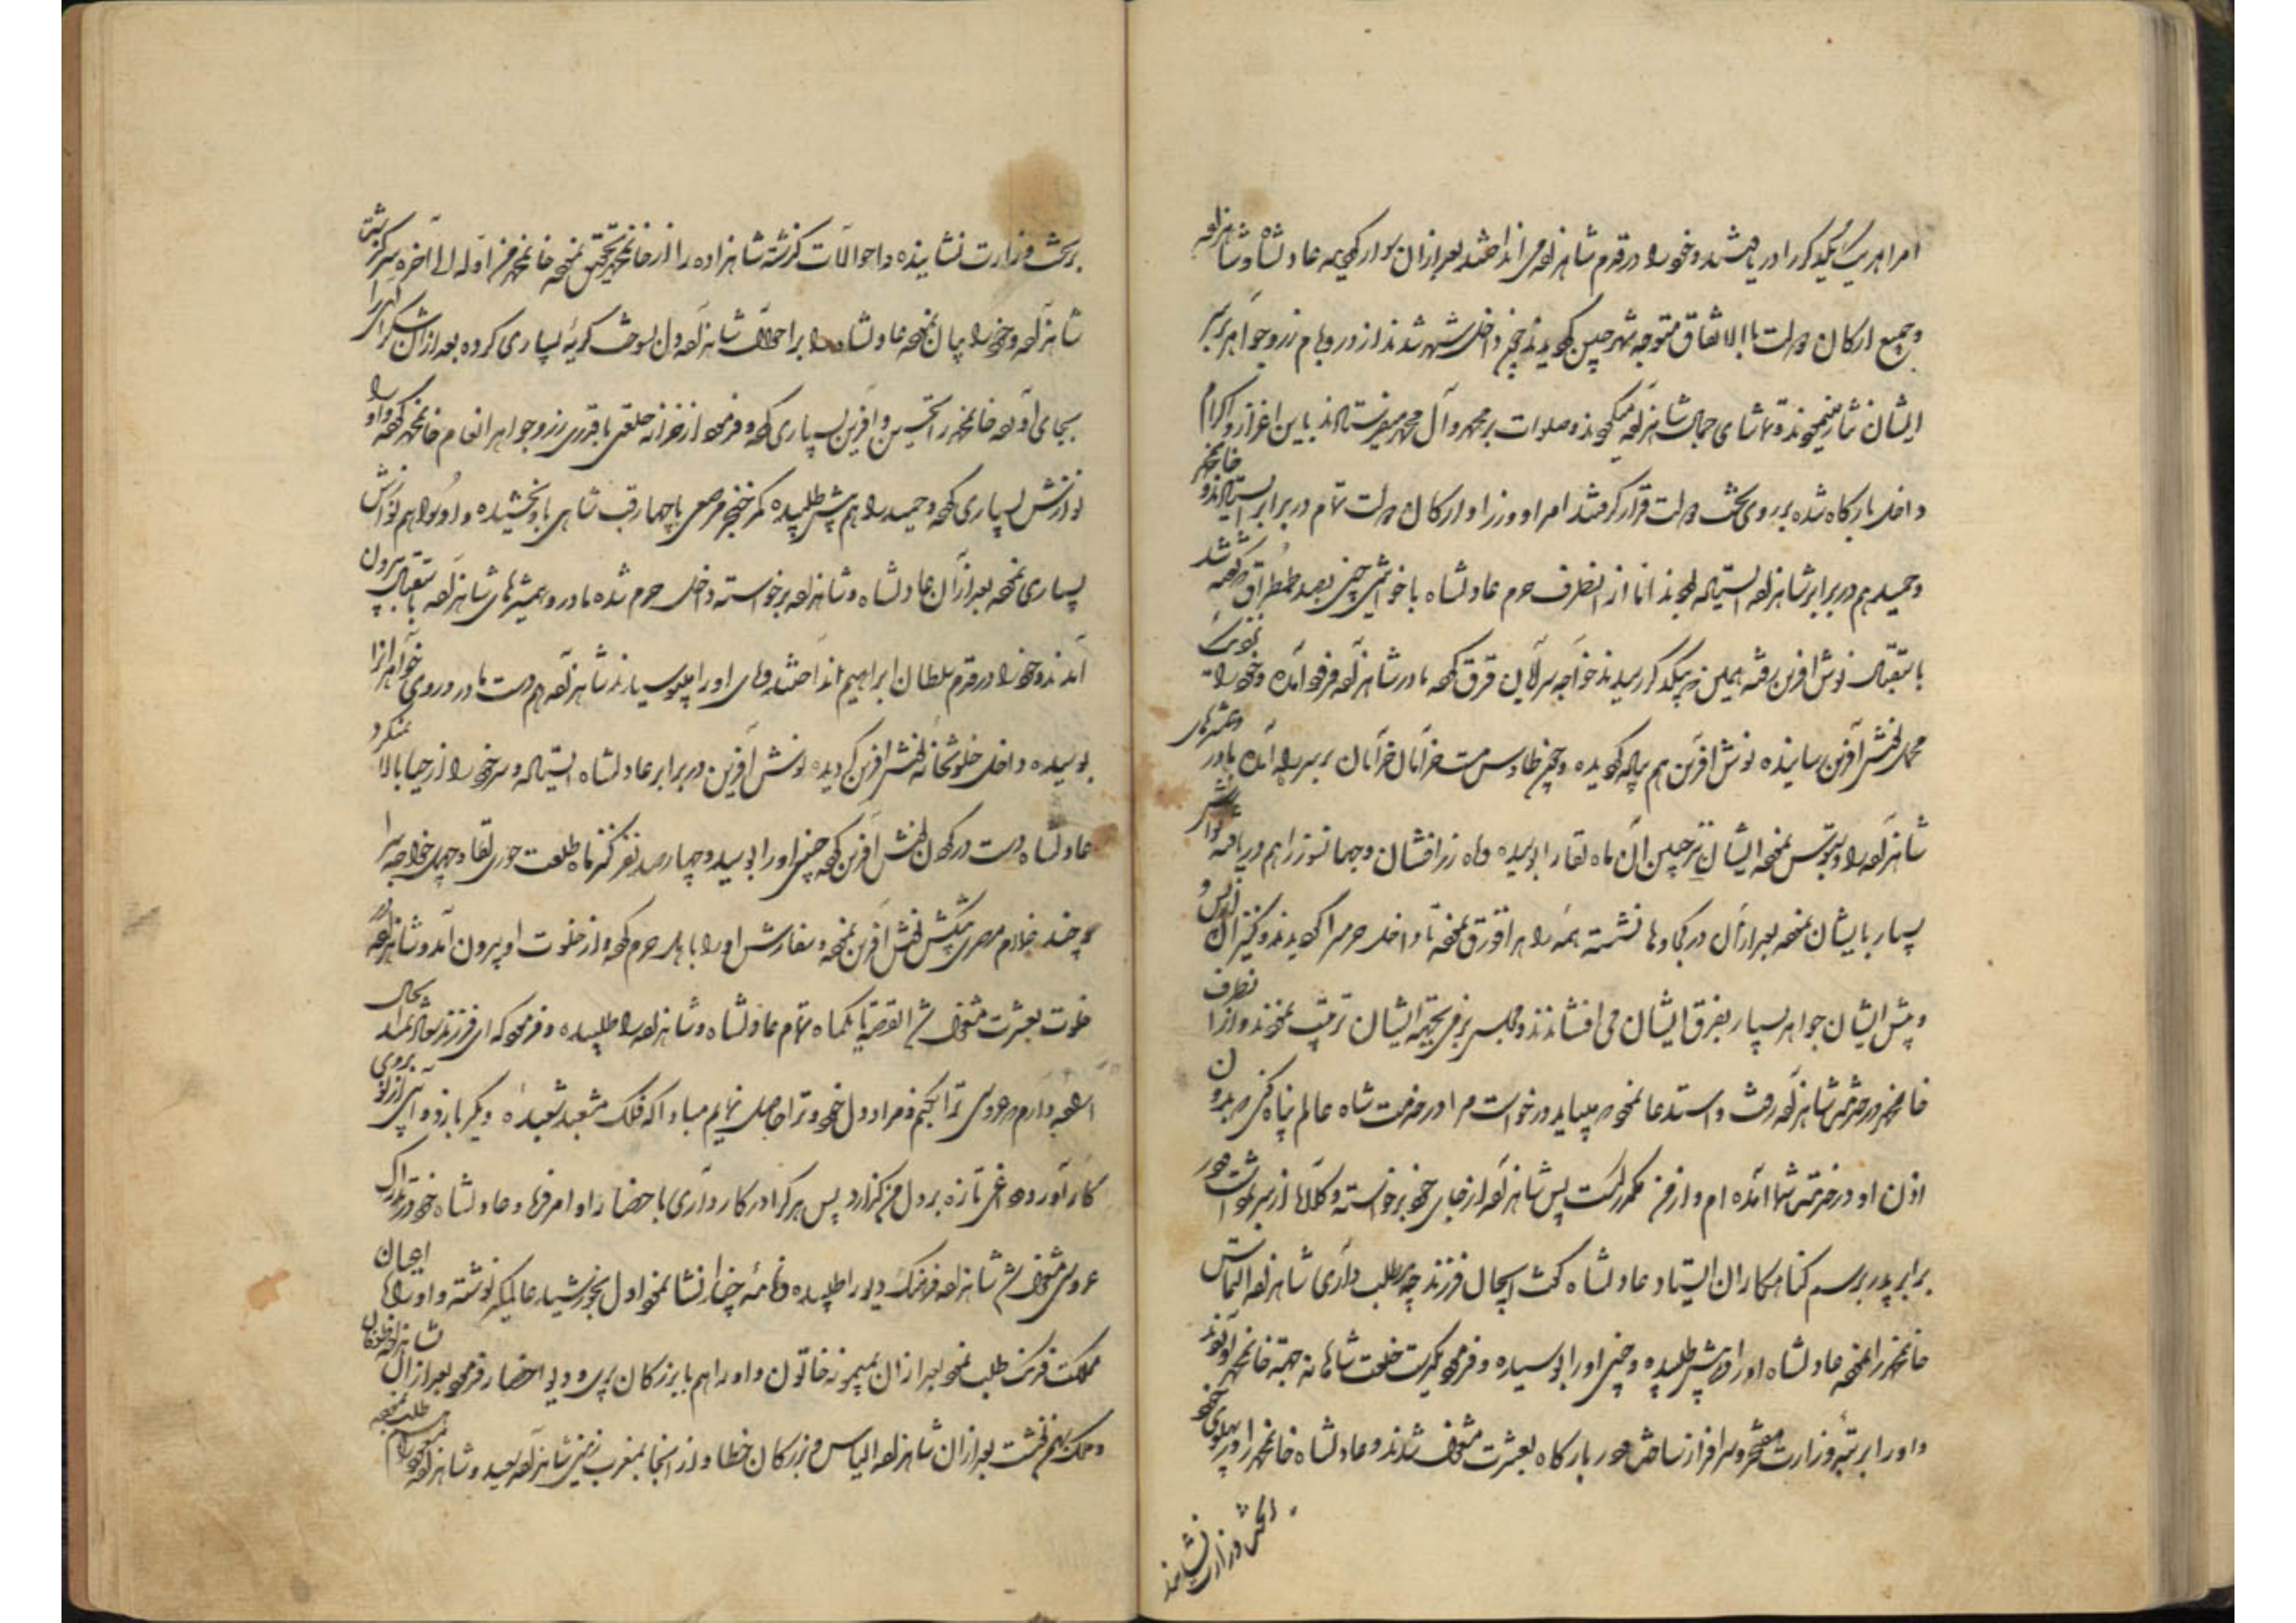 امرا هر یک یکدیگر را دریافتند و خود را در قدم شاهزاده می انداختند بعد از آن سوار گردیده عادلشاه و شاهزاده
و جمیع ارکان دولت باالاتفاق متوجه شهر چین گردیدند چون داخل شهر شدند از در و بام زر و جواهر بر سر
ایشان نثار مینمودند و تماشای جمال شاهزاده میکردند و صلوات بر محمد و آل محمد میفرستادند باین اعزاز و اکرام
داخل بارگاه شده بر روی تخت دولت قرار گرفتند امرا و وزرا و ارکان دولت تمام در برابر ایستادند و خانمحمد
و حمید هم در برابر شاهزاده ایستاده بودند اما از انطرف حرم عادلشاه با خواتین چین بصد طمطراق
باستقبال نوش آفرین رفته همین که بیکدیگر رسیدند خواجه سرایان قرق کرده مادر شاهزاده فرود آمده و خود را
نوش آفرین رسانیده نوش آفرین هم پیاده گردیده و چون طاوس مست خرامان خرامان بر سر راه آمده مادر و همشیرهای
شاهزاده را دستبوس نموده ایشان نیز جبین آن ماه لقا را بوسیده و ماه زرافشان و جهانسوز را هم دریافته نوازش
بسیار بایشان نموده بعد از آن در کجاوها نشسته همه راه را قورق نموده تا داخل حرمسرا گردیدند و کنیزان از پس و
و پیش ایشان جواهر بسیار بفرق ایشان می افشاندند و مجلس بزمی بجهة ایشان ترتیب نمودند و از آنطرف
خانمحمد در خدمت شاهزاده رفت و استدعا نمود که میباید درخواست مرا در خدمت شاه عالم پناه کنی که بدون
اذن او در خدمت شما آمده ام و از من مکدر است پس شاهزاده از جای خود برخواسته و کلاه از سر برداشت در
برابر پدر برسم گناهکاران ایستاد عادلشاه گفت ایجان فرزند چه مطلب داری شاهزاده التماس
خانمحمد را نموده عادلشاه او را پیش طلبیده و جبین او را بوسیده و فرمود یکدست خلعت شاهانه بجهة خانمحمد آوردند
و او را برتبه وزارت مفتخر و سرافراز ساخت و در بارگاه بعشرت مشغول شدند و عادلشاه خانمحمد را در پهلوی خود
بر تخت وزارت نشانیده
بر تخت وزارت نشانیده و احوالات گذشته شاهزاده را از خانمحمد تحقیق نموده خانمحمد من اوله الی آخره سرگذشت
شاهزاده و خود را بیان نموده عادلشاه را بر احوالات شاهزاده دل بسوخت گریه بسیاری کرده بعد از آن شکر الهی را
بجای آورده خانمحمد را تحسین و آفرین بسیاری کرده و فرمود از خزانه خلعتی با قدری زر و جواهر انعام خانمحمد کرده و او را
نوازش بسیاری کرده و حمید را هم پیش طلبیده کمر خنجر مرصعی با چهار قب شاهی باو بخشیده و او را هم نوازش
بسیاری نموده بعد از آن عادلشاه و شاهزاده برخواسته داخل حرم شده مادر و همشیرهای شاهزاده باستقبال بیرون
آمدند و خود را در قدم سلطان ابراهیم انداختند و پای او را میبوسیدند شاهزاده هم دست مادر و روی خواهرانرا
بوسیده داخل خلوتخانه نوش آفرین گردیده نوش آفرین در برابر عادلشاه ایستاده و سر خود را از حیا بالا نمیکرد
عادلشاه دست در گردن نوش آفرین کرده جبین او را بوسید و چهارصد نفر کنیز ماه طلعت حوری لقا و چهل خواجه سرا
و چند غلام مصری پیشکش نوش آفرین نموده و سفارش او را باهل حرم کرده و از خلوت او بیرون آمد و شاهزاده در
خلوت بعشرت مشغول شد القصه تا یکماه تمام عادلشاه و شاهزاده را طلبیده و فرمود که ای فرزند
اراده دارم که عروسی ترا بکنم و مراد دل خود و ترا حاصل نمایم مبادا که فلک مشعبد شعبده دیگر بازد و آبی از نو بروی
کار آورده و غمی تازه بر دل من گذارد پس هر که را در کار داری باحضار او امر فرما و عادلشاه خود در تدارک
عروسی مشغول شد شاهزاده فرهنگ دیو را طلبیده و نامه چند انشا نمود اول بخورشید عالمگیر نوشته و او را با اعیان
مملکت فرنگ طلب نمود بعد از آن میمونه خاتون و او را هم با بزرگان پری و دیو احضار فرمود بعد از آن شاهزاده
بعد از آن شاهزاده الیاس و بزرگان خطا و از آنجا بمغرب زمین شاهزاده سعید و شاهزاده